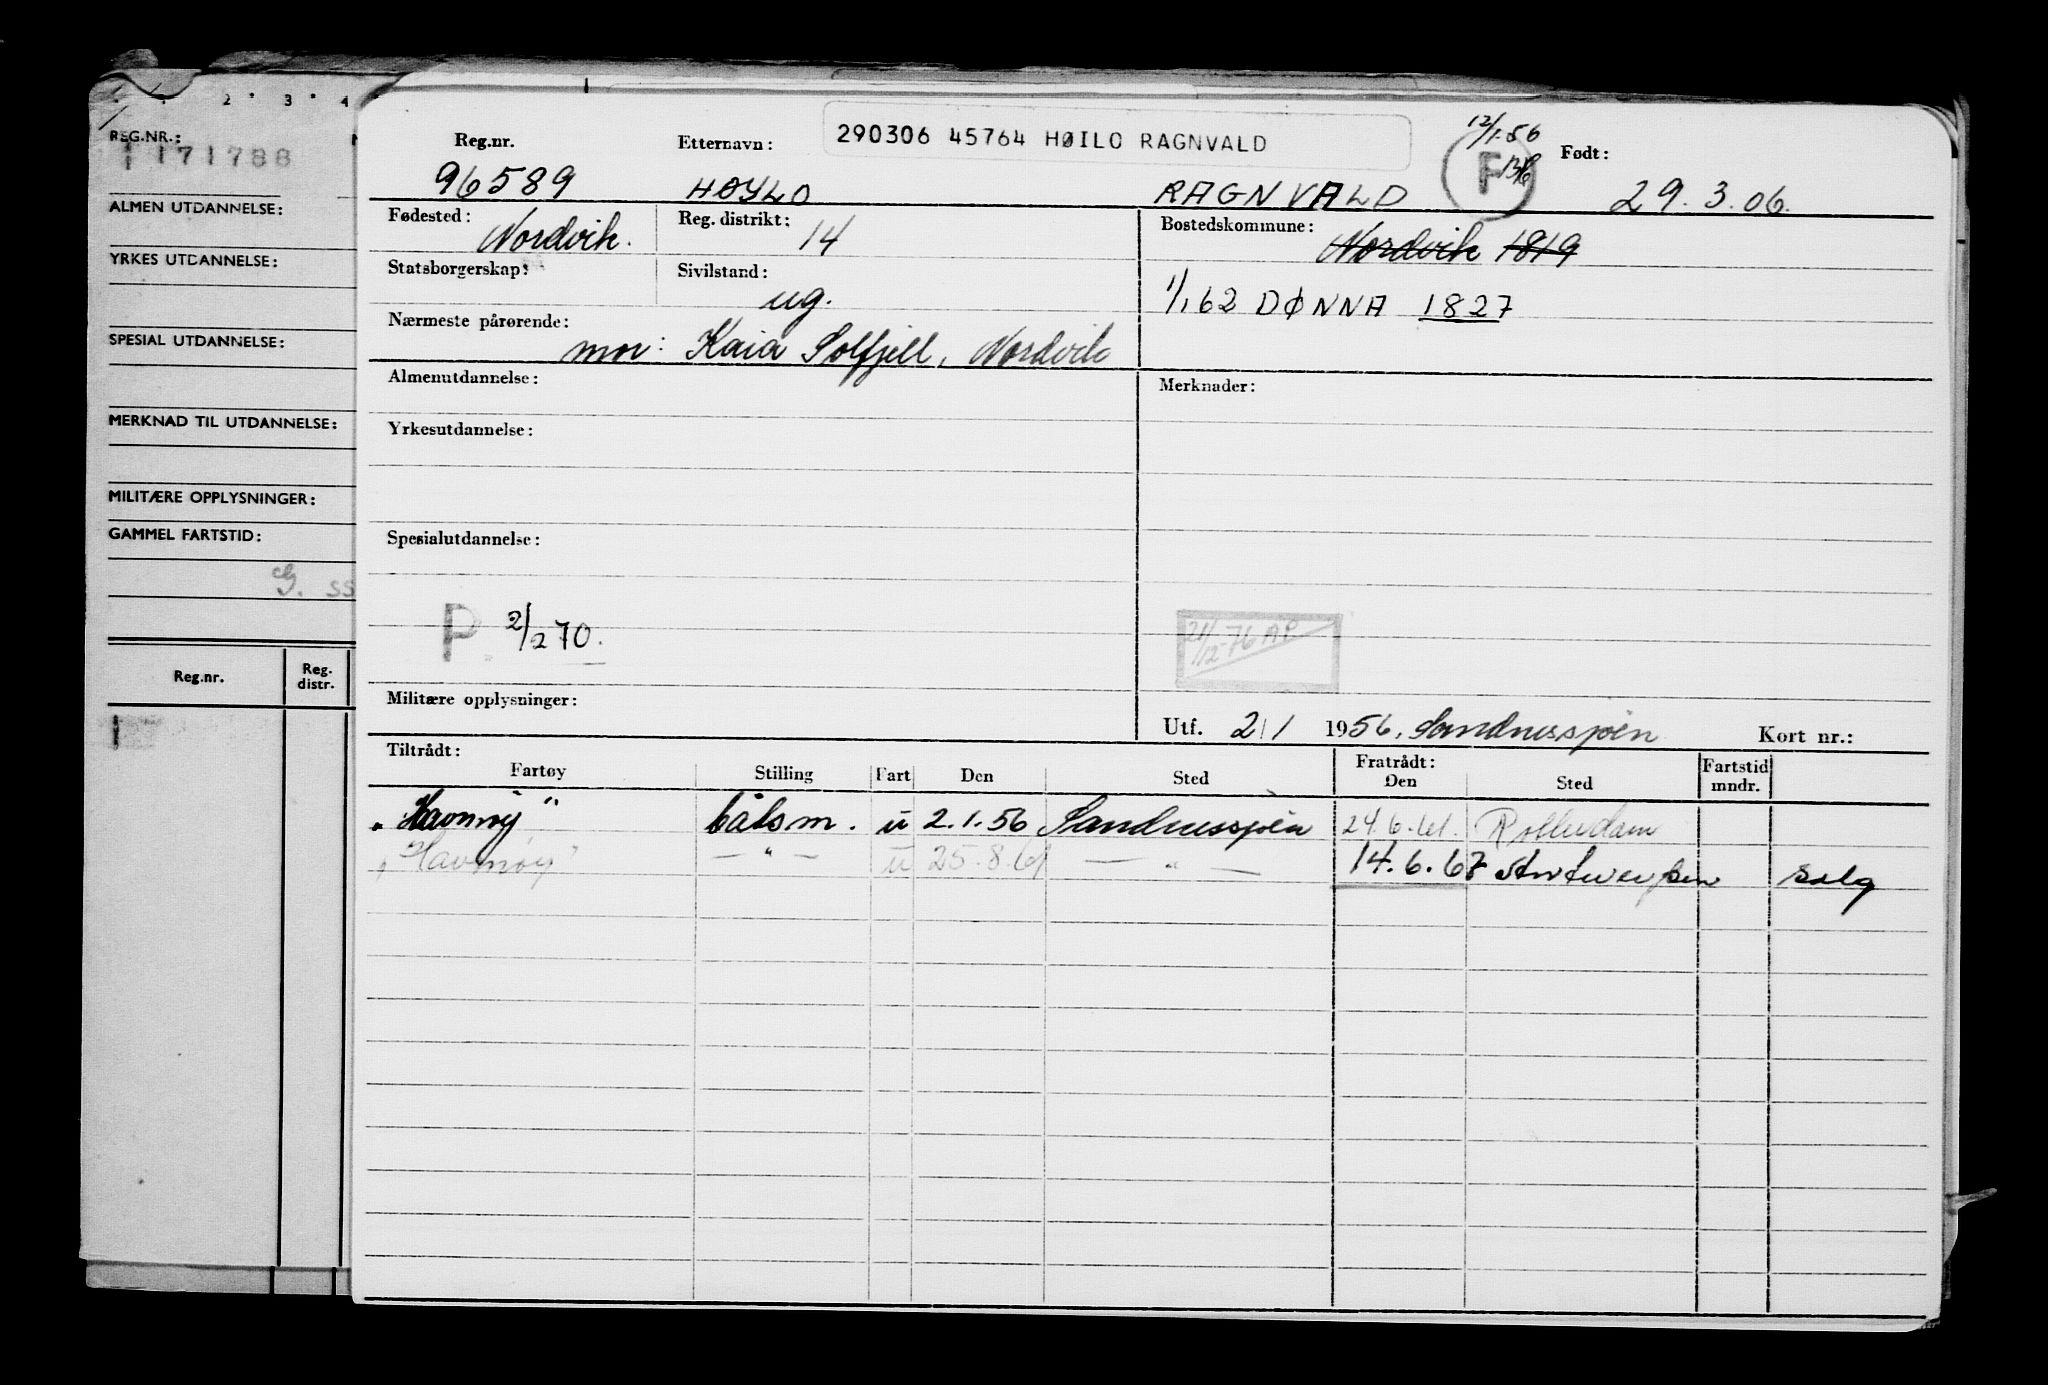 2 3 4
REG.NR.:
171788
ALMEN UTDANNELSE:
YRKES UTDANNELSE:
SPESIAL UTDANNELSE:
MERKNAD TIL UTDANNELSE:
MILITÆRE OPPLYSNINGER:
GAMMEL FARTSTID:
SS
Reg.nr. Reg. distr.
Reg.nr. Etternavn: 290306 45764 HØILO RAGNVALD 12/1-56 F Født:
96589 HØYLO RAGNVALD 29.3.06.
Fødested: Nordvik. Reg. distrikt: 14 Bostedskommune: Nordvik 1819
Statsborgerskap: Sivilstand: ug. 1/1 62 DØNNA 1827
Nærmeste pårørende: mor: Kaia Solfjell, Nordvik
Almenutdannelse: Merknader:
Yrkesutdannelse:
Spesialutdannelse:
P 2/2 70. 21/12-76 AP
Militære opplysninger:
Utf. 2/1 1956, Sandnessjøen Kort nr.:
Tiltrådt: Fratrådt:
Fartøy Stilling Fart Den Sted Den Sted Fartstid mndr.
"Havnøy" båtsm. u 2.1.56 Sandnessjøen 24.6.61. Rotterdam
"Havnøy" — " — u 25.8.61 — " — 14.6.67 Antwerpen salg